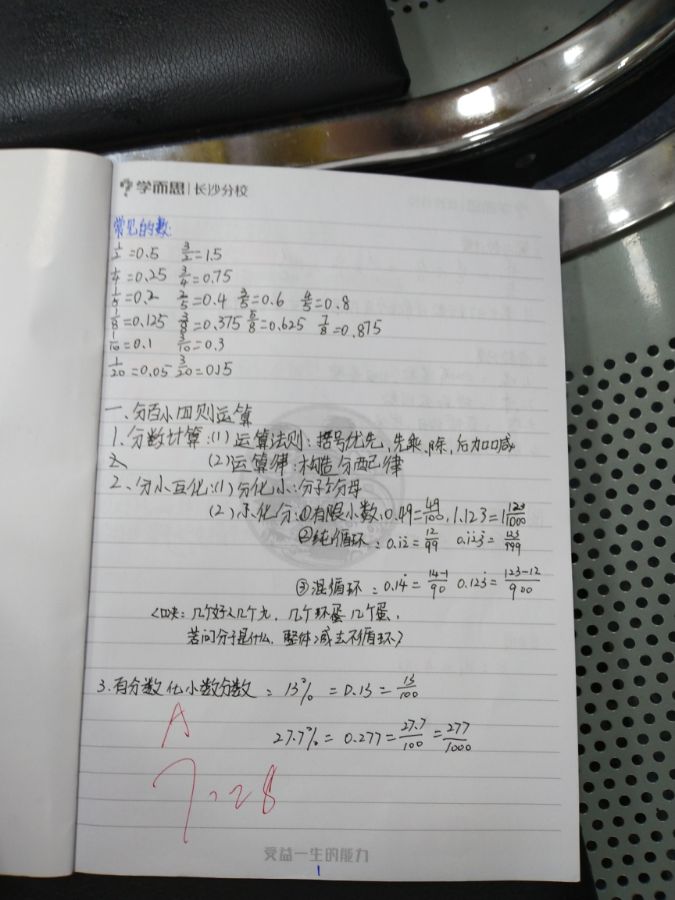 学而思 | 长沙分校
常见的数:
1/2=0.5 3/2=1.5
1/4=0.25 3/4=0.75
1/5=0.2 2/5=0.4 3/5=0.6 4/5=0.8
1/8=0.125 3/8=0.375 5/8=0.625 7/8=0.875
1/10=0.1 3/10=0.3
1/20=0.05 3/20=0.15
一、分百小四则运算
1.分数计算:(1)运算法则:括号优先,先乘、除,后加口减
(2)运算律:构造分配律
2、分小互化:(1)分化小:分子÷分母
(2)小化分:①有限小数:0.49=49/100,1.123=1 123/1000
②纯循环:0.1̇2̇=12/99 0.1̇23̇=123/999
③混循环:0.14̇=14-1/90 0.123̇=123-12/900
<口决:几个好人几个九,几个坏蛋几个蛋,
若问分子是什么,整体减去不循环>
3.百分数化小数分数:13%=0.13=13/100
27.7%=0.277=27.7/100=277/1000
A
7.28
受益一生的能力
1